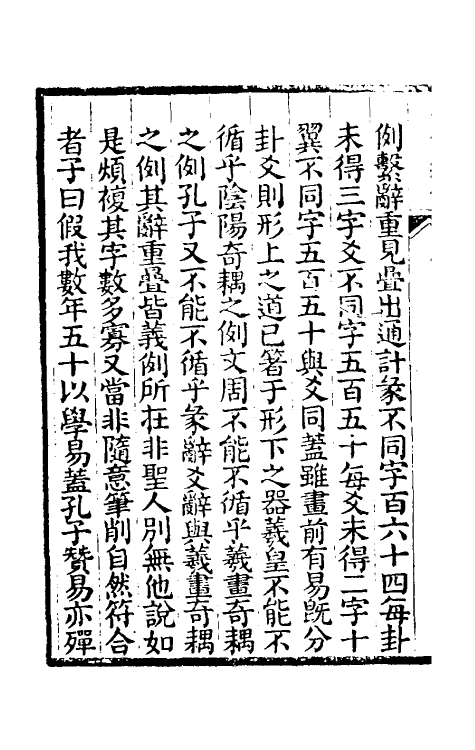 例繫辭重見疊出通計彖不同字百六十四每卦
未得三字爻不同字五百五十每爻未得二字十
翼不同字五百五十與爻同蓋雖畫前有易旣分
卦爻則形上之道已著于形下之器羲皇不能不
循乎陰陽奇耦之例文周不能不循乎羲畫奇耦
之例孔子又不能不循乎彖辭爻辭與羲畫奇耦
之例其辭重疊皆義例所在非聖人別無他說如
是煩複其字數多寡又當非隨意筆削自然符合
者子曰假我數年五十以學易蓋孔子贊易亦殫